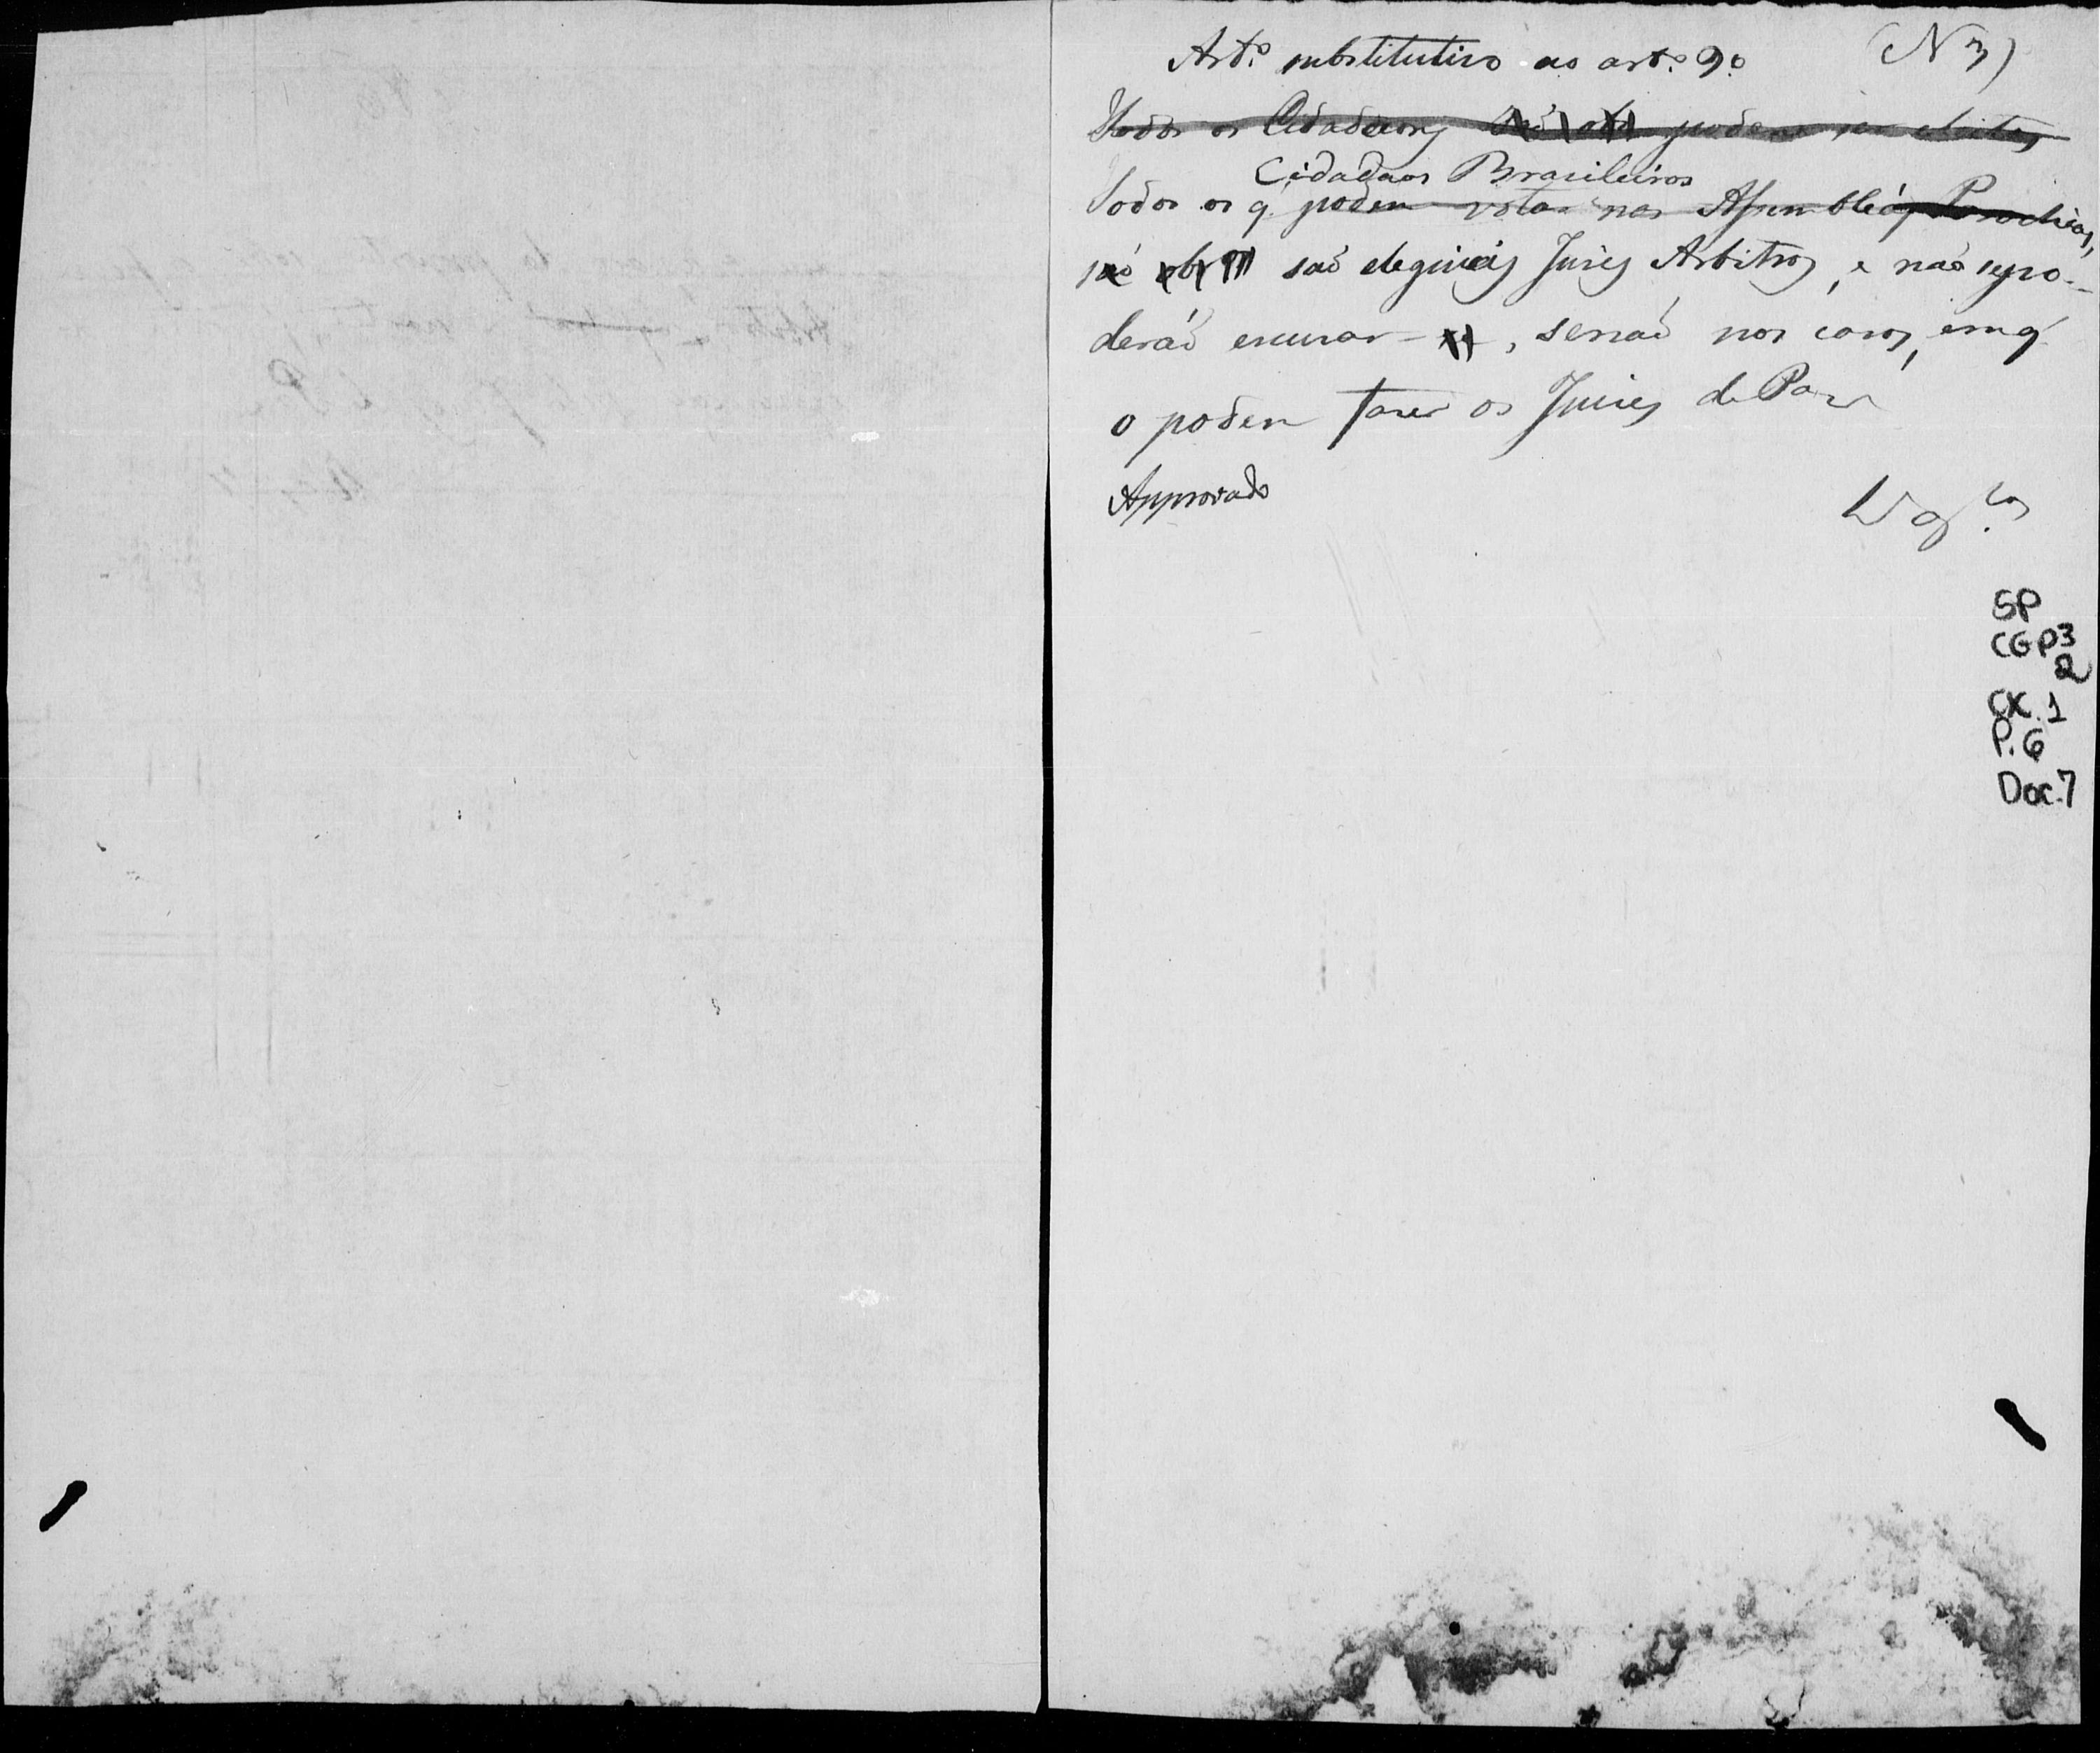 Art.º substitutivo ao art.º 9.º (N 3)
Todos os Cidadãons podem ser eleitos
Cidadãos Brasileiros
Todos os q. podem votar nas Assembléas Parochiaes,
são são elegiveis Juises Arbitros, e não se po-
deráõ excusar-se, senaõ nos casos, em q'
o podem faser os Juises de Paz
Approvado
SP
CGP3
2
CX. 1
P. 6
Doc. 7